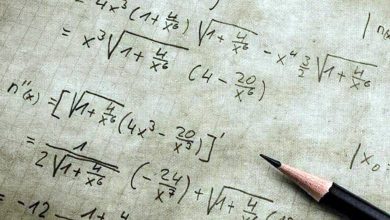 = 4x³(1+4/x⁶)√(1+4/x⁶) | n(x
= x³√(1+4/x⁶) (4 − 20/x⁶) − x⁴ 3/2 √(1+4/x⁶)
n''(x) = [√(1+4/x⁶)(4x³ − 20/x³)]'
= 1/(2√(1+4/x⁶)) (−24/x⁷) + √(1+4/x⁶) ( | x₀
= −12 1+4